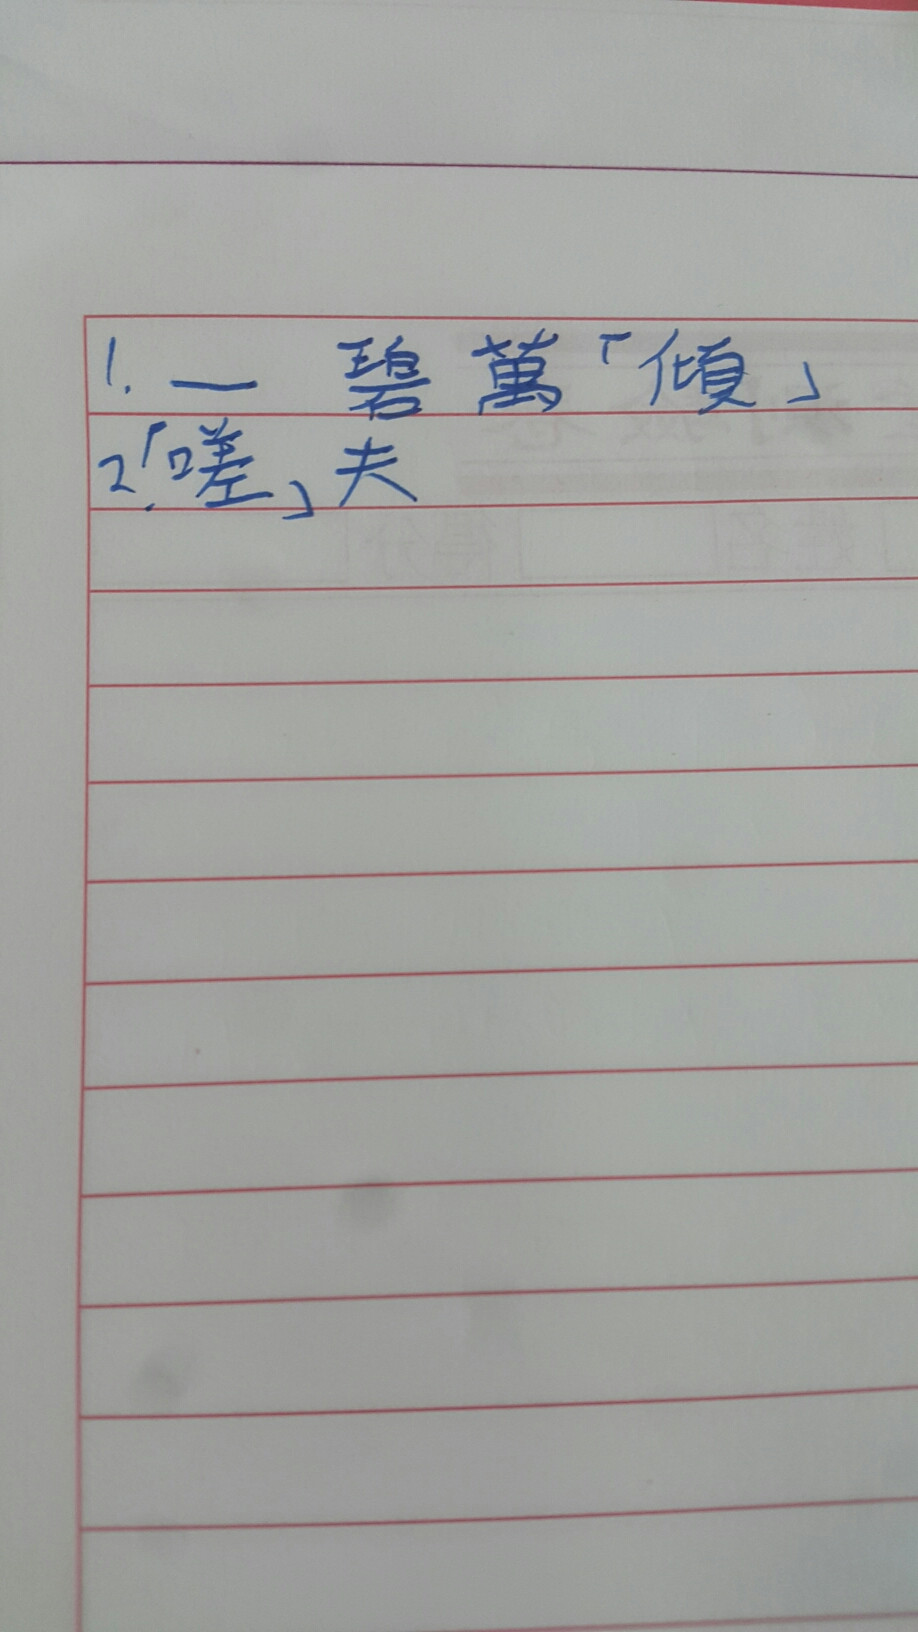 1. 一碧萬「傾」
2.「嗟」夫